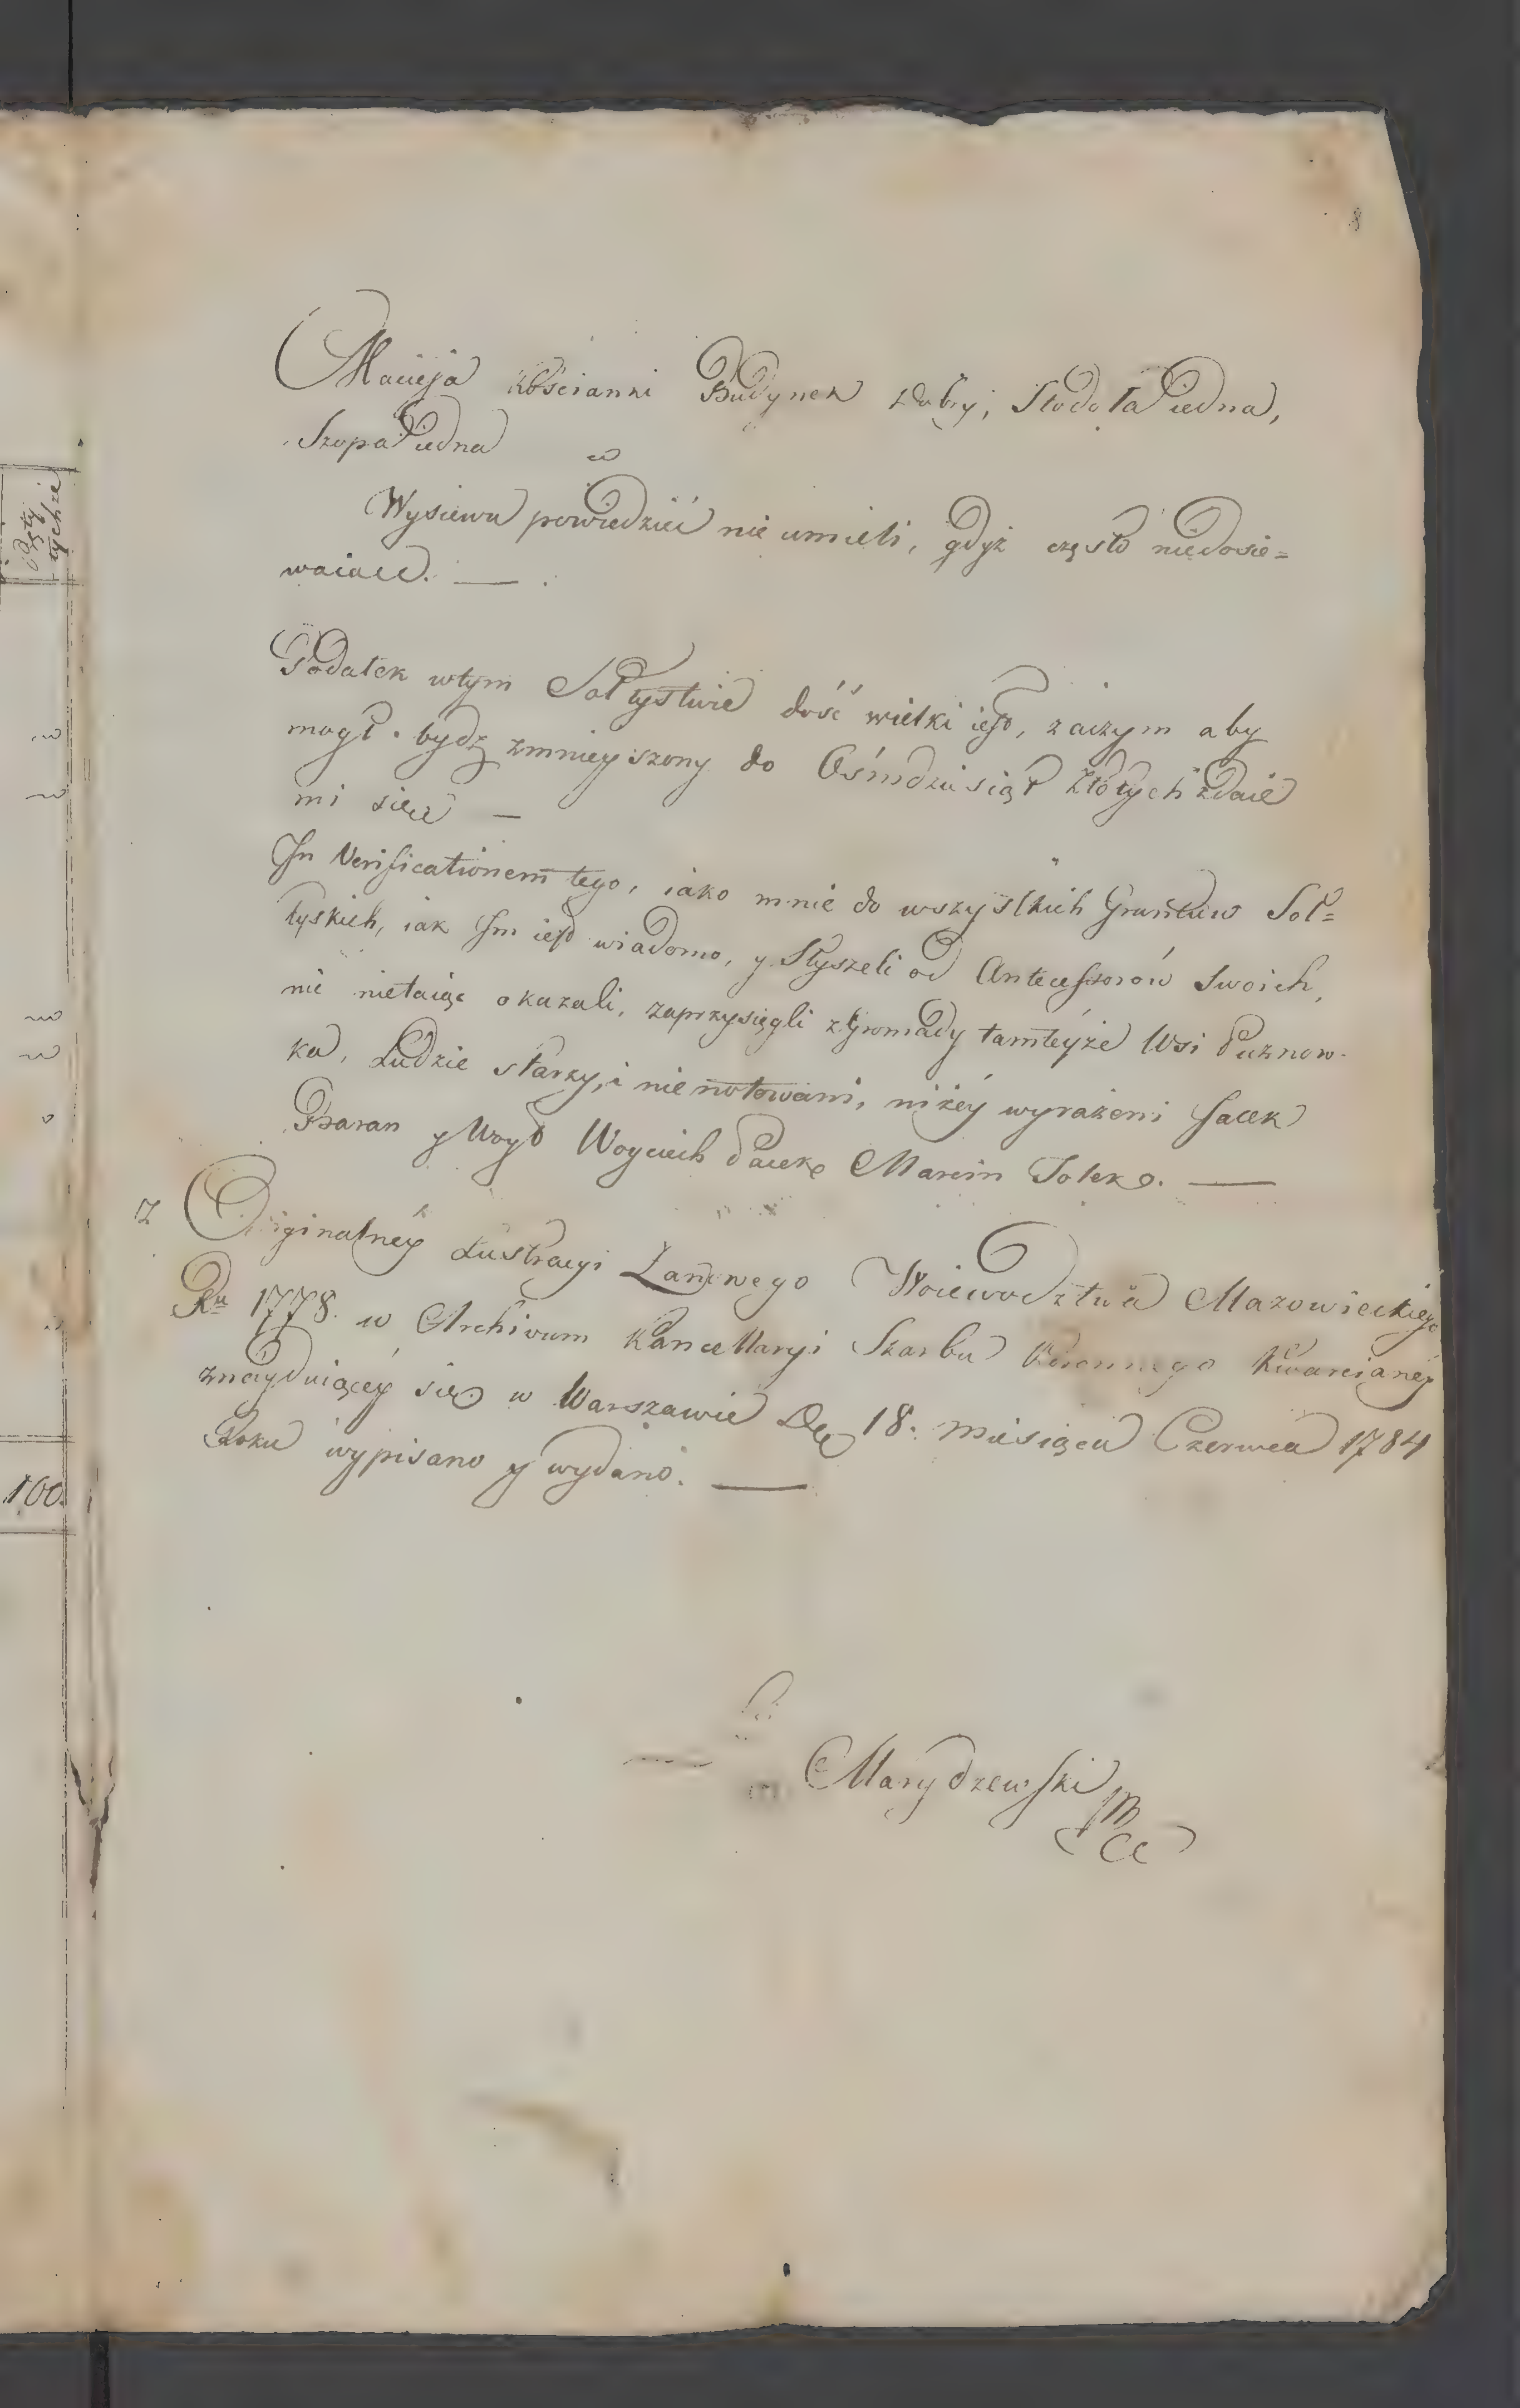 8
Macieja Kościanki Budynek Dobry, Stodoła iedna,
Szopa iedna
Wysiewu powiedzieć nie umieli, gdyż często niedosie=
waiąc.
Podatek wtym Sołtystwie dość wielki iest, zaczym aby
mogł bydź zmnieyszony do Ośmdziesiąt Złotych zdaie
mi się
In Verificationem tego, iako mnie do wszystkich Gruntów Soł=
tyskich, iak Im iest wiadomo, y Słyszeli od Antecessorów Swoich,
nic nietaiąc okazali, zaprzysięgli z Gromady tamteyże Wsi Puznow-
ka, Ludzie starzy, i nie notowani, niżey wyrażeni Jacek
Baran y Woyt Woyciech Pacek Marcin Solek.
Z Originalney Lustracyi Łanowego Woiewodztwa Mazowieckiego
Ru 1778. w Archivum Kancellaryi Skarbu Koronnego Kwarcianey
znayduiącey się w Warszawie De 18. miesiąca Czerwca 1784
Roku wypisano y wydano.
100.